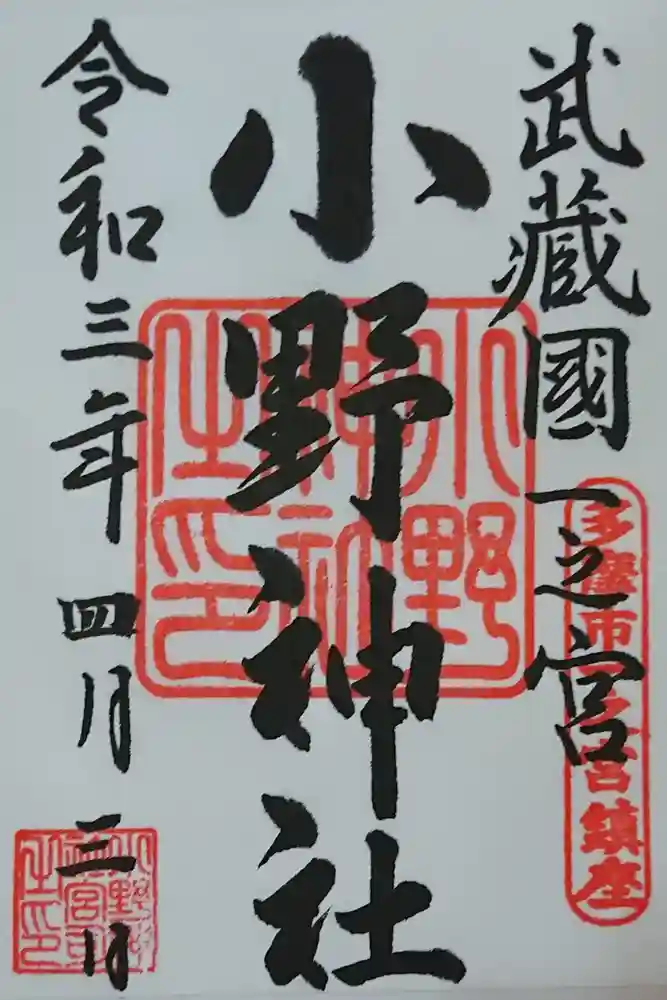 武藏國一之宮
多摩市一之宮鎮座
小野神社
小野神社之印
令和三年四月三日
小野神社宮司之印